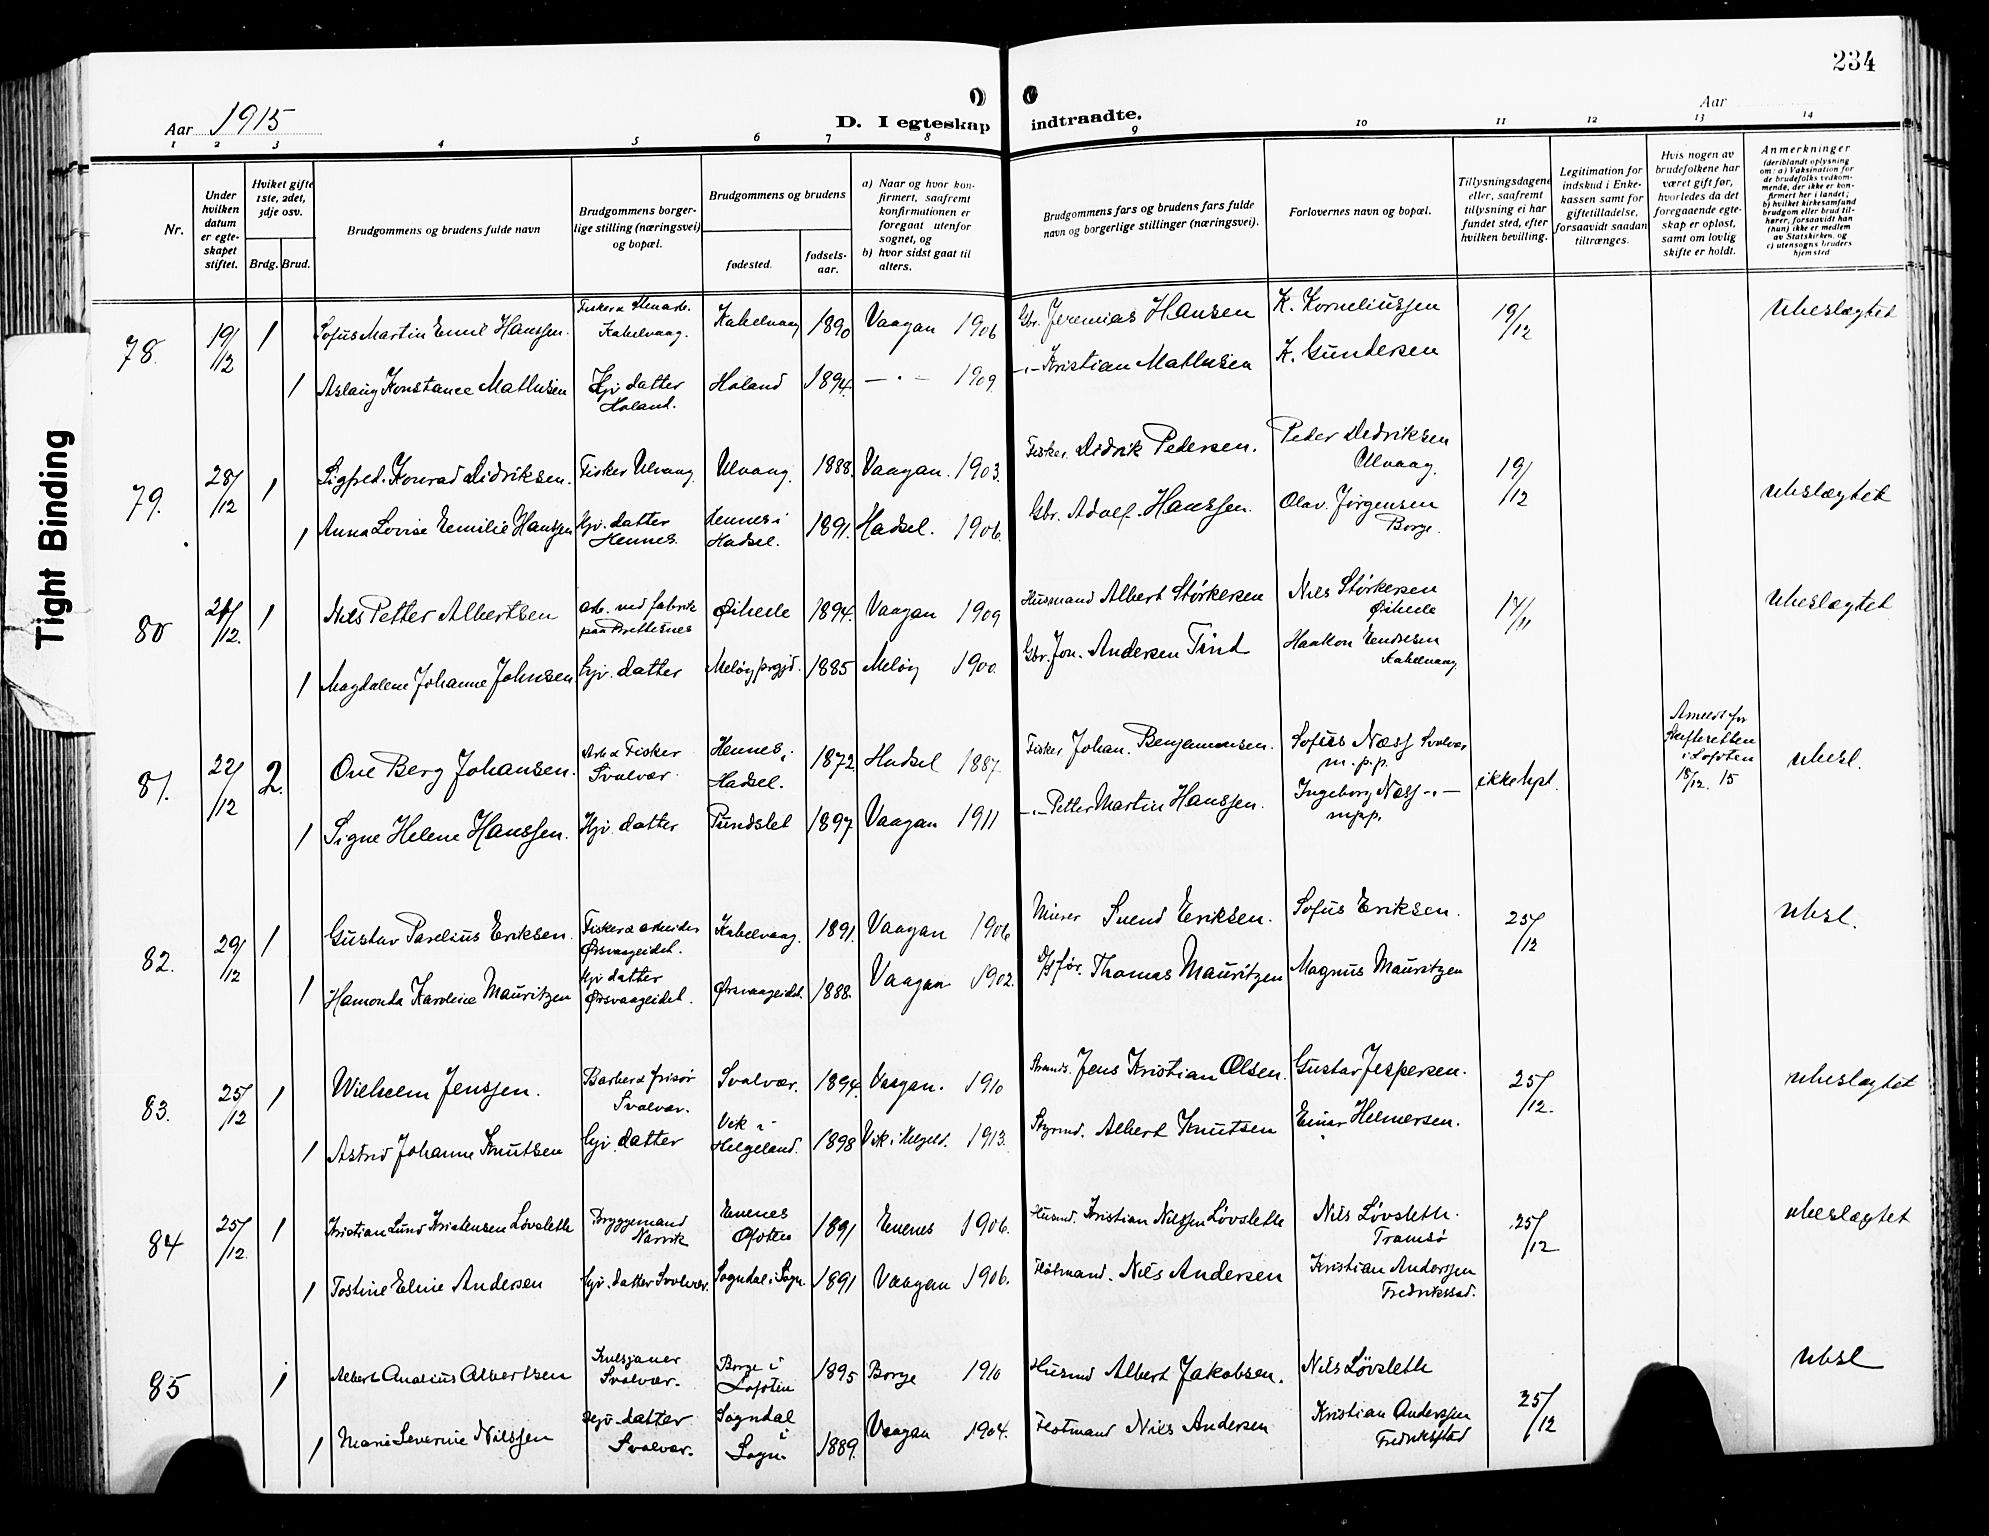 234
Tight Binding
Aar 1915
D. I egteskap indtraadte.
Aar
1 2 3 4 5 6 7 8 9 10 11 12 13 14
Nr.
Under hvilken datum er egteskapet stiftet.
Hviket gifte 1ste, 2det, 3dje osv.
Brdg. Brud.
Brudgommens og brudens fulde navn
Brudgommens borgerlige stilling (næringsvei) og bopæl.
Brudgommens og brudens
fødested.
fødselsaar.
a) Naar og hvor konfirmert, saafremt konfirmationen er foregaat utenfor sognet, og
b) hvor sidst gaat til alters.
Brudgommens fars og brudens fars fulde navn og borgerlige stillinger (næringsvei).
Forlovernes navn og bopæl.
Tillysningsdagene eller, saafremt tillysning ei har fundet sted, efter hvilken bevilling.
Legitimation for indskud i Enkekassen samt for giftetilladelse, forsaavidt saadan tiltrænges.
Hvis nogen av brudefolkene har været gift før, hvorledes da det foregaaende egteskap er opløst, samt om lovlig skifte er holdt.
Anmerkninger
(deriblandt oplysning om: a) Vaksination for de brudefolks vedkommende, der ikke er konfirmert her i landet; b) hvilket kirkesamfund brudgom eller brud tilhører, forsaavidt han (hun) ikke er medlem av Statskirken, og c) utensogns bruders hjemsted
78. 19/12 1 Sofus Martin Emil Hanssen. Kabelvaag. Kabelvaag 1890 Vaagan 1906 Gbr. Jeremias Hansen K. Korneliussen 19/12 Ubeslægtet
1 Aslaug Konstance Mathisen Hjv. datter Høland. Høland 1894. — " — 1909. — " — Kristian Mathisen K. Gundersen
79. 28/12 1 Sigfred Konrad Didriksen. Fisker Ulvaag. Ulvaag. 1888. Vaagan. 1903. Fisker. Didrik Pedersen. Peder Didriksen Ulvaag. 19/12 Ubeslægtet
1 Anna Lovise Emilie Hanssen Hjv. datter Hennes. Hennes i Hadsel. 1891. Hadsel. 1906. Gbr. Adolf Hanssen. Olav Jørgensen Borge.
80 1 Nils Petter Albertsen arb. ved fabrik paa Brettesnes Øihelle 1894. Vaagan 1909 Husmand Albert Størkersen Nils Størkersen Øihelle 14/11 Ubeslægtet
1 Magdalene Johanne Johnsen hjv. datter Meløy prgjd. 1885 Meløy 1900. Gbr. Jon. Andersen Haakon Eendresen Kabelvaag
81. 22/12 2. Ove Berg Johansen. Arb & Fisker Svolvær. Hennes i Hadsel. 1872 Hadsel 1887 Fisker Johan. Benjaminsen. Sofus Næss Svolvær m.p.p. ikke lyst. Anmeldt for Skifteretten i Lofoten 18/12. 15 ubesl.
1 Signe Helene Hanssen. Hjv. datter Pundslet 1897 Vaagan 1911 — " — Petter Martin Hanssen. Ingeborg Næss — " — m.p.p.
82. 29/12 1 Gustav Parelius Eriksen. Fisker & arbeider Ørsvaageidet. Kabelvaag. 1891. Vaagan 1906 Murer Svend Eriksen. Sofus Eriksen. 25/12 Ubsl.
1 Hamonda Karoline Mauritzen hjv datter Ørsvaageidet. Ørsvaageidet. 1888. Vaagan 1902. Thomas Mauritzen Magnus Mauritzen
83. 25/12 1 Wilhelm Jenssen. Barber & frisør Svolvær. Svolvær. 1894. Vaagan. 1910 Jens Kristian Olsen. Gustav Jespersen. 25/12. Ubeslægtet
1 Astrid Johanne Knutsen hjv. datter Vik i Helgeland. 1898 Vik i Helgeld. 1913. Styrmd. Albert Knutsen Einar Helmersen.
84 25/12. 1 Kristian Lund Kristensen Løvsleth Bryggemand Narvik Evenes Ofoten 1891 Evenes 1906. Husmd. Kristian Nilssen Løvsleth Nils Løvsleth. Tromsø 25/12 Ubeslægtet
1 Tostine Eline Andersen hjv. datter Svolvær. Sogndal i Sogn 1891 Vaagan 1906. Flotmand. Nils Andersen Kristian Anderssen Fredriksstad.
85 1 Albert Analius Albertsen Svolvær. Borge i Lofoten 1895 Borge 1910 Husmd Albert Jakobsen. Nils Løvsleth 25/12 Ubsl
1 Marie Severine Nilssen hjv. datter Svolvær. Sogndal i Sogn. 1889. Vaagan 1904. Flotmand Nils Andersen Kristian Anderssen Fredriksstad